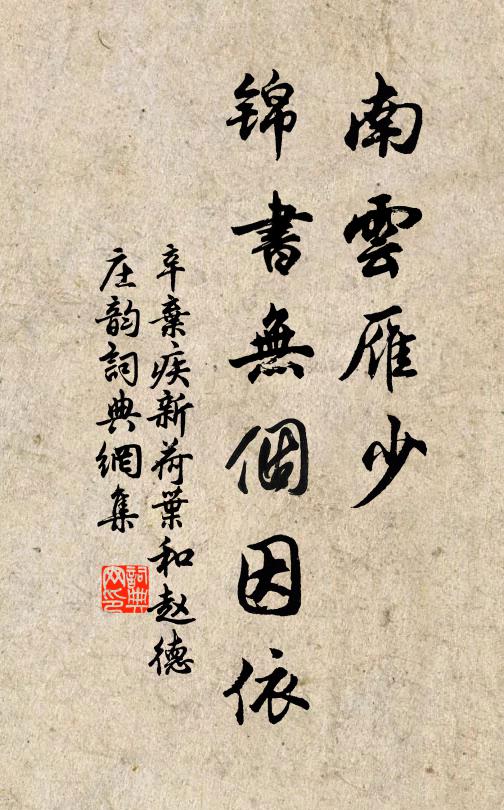 南雲雁少
錦書無個因依
辛棄疾新荷葉和赵德
庄韵詞典網集
詞典
网印